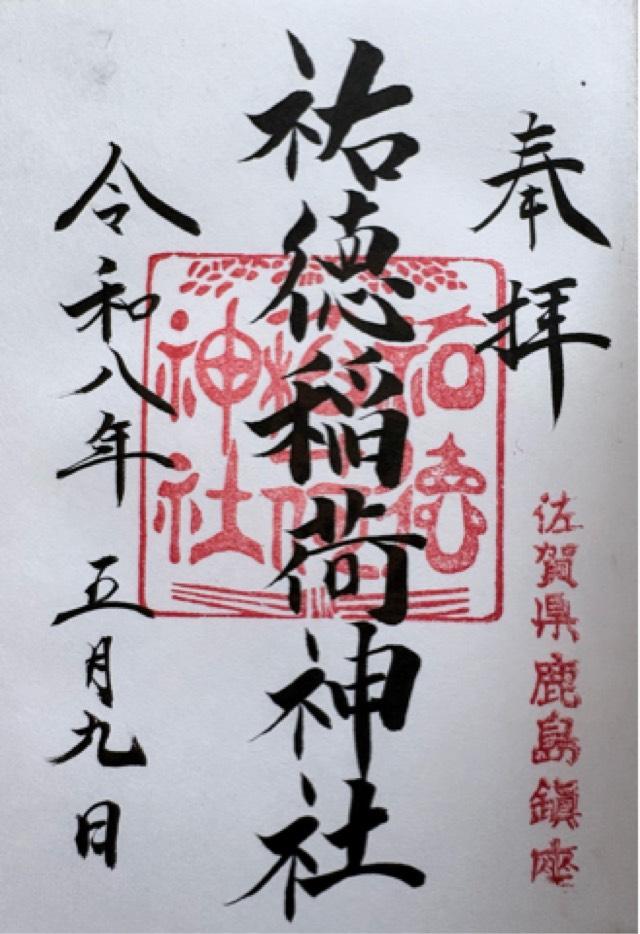 奉拝
佐賀県鹿島鎮座
祐徳稲荷神社
祐徳
稲荷
神社
令和八年 五月九日